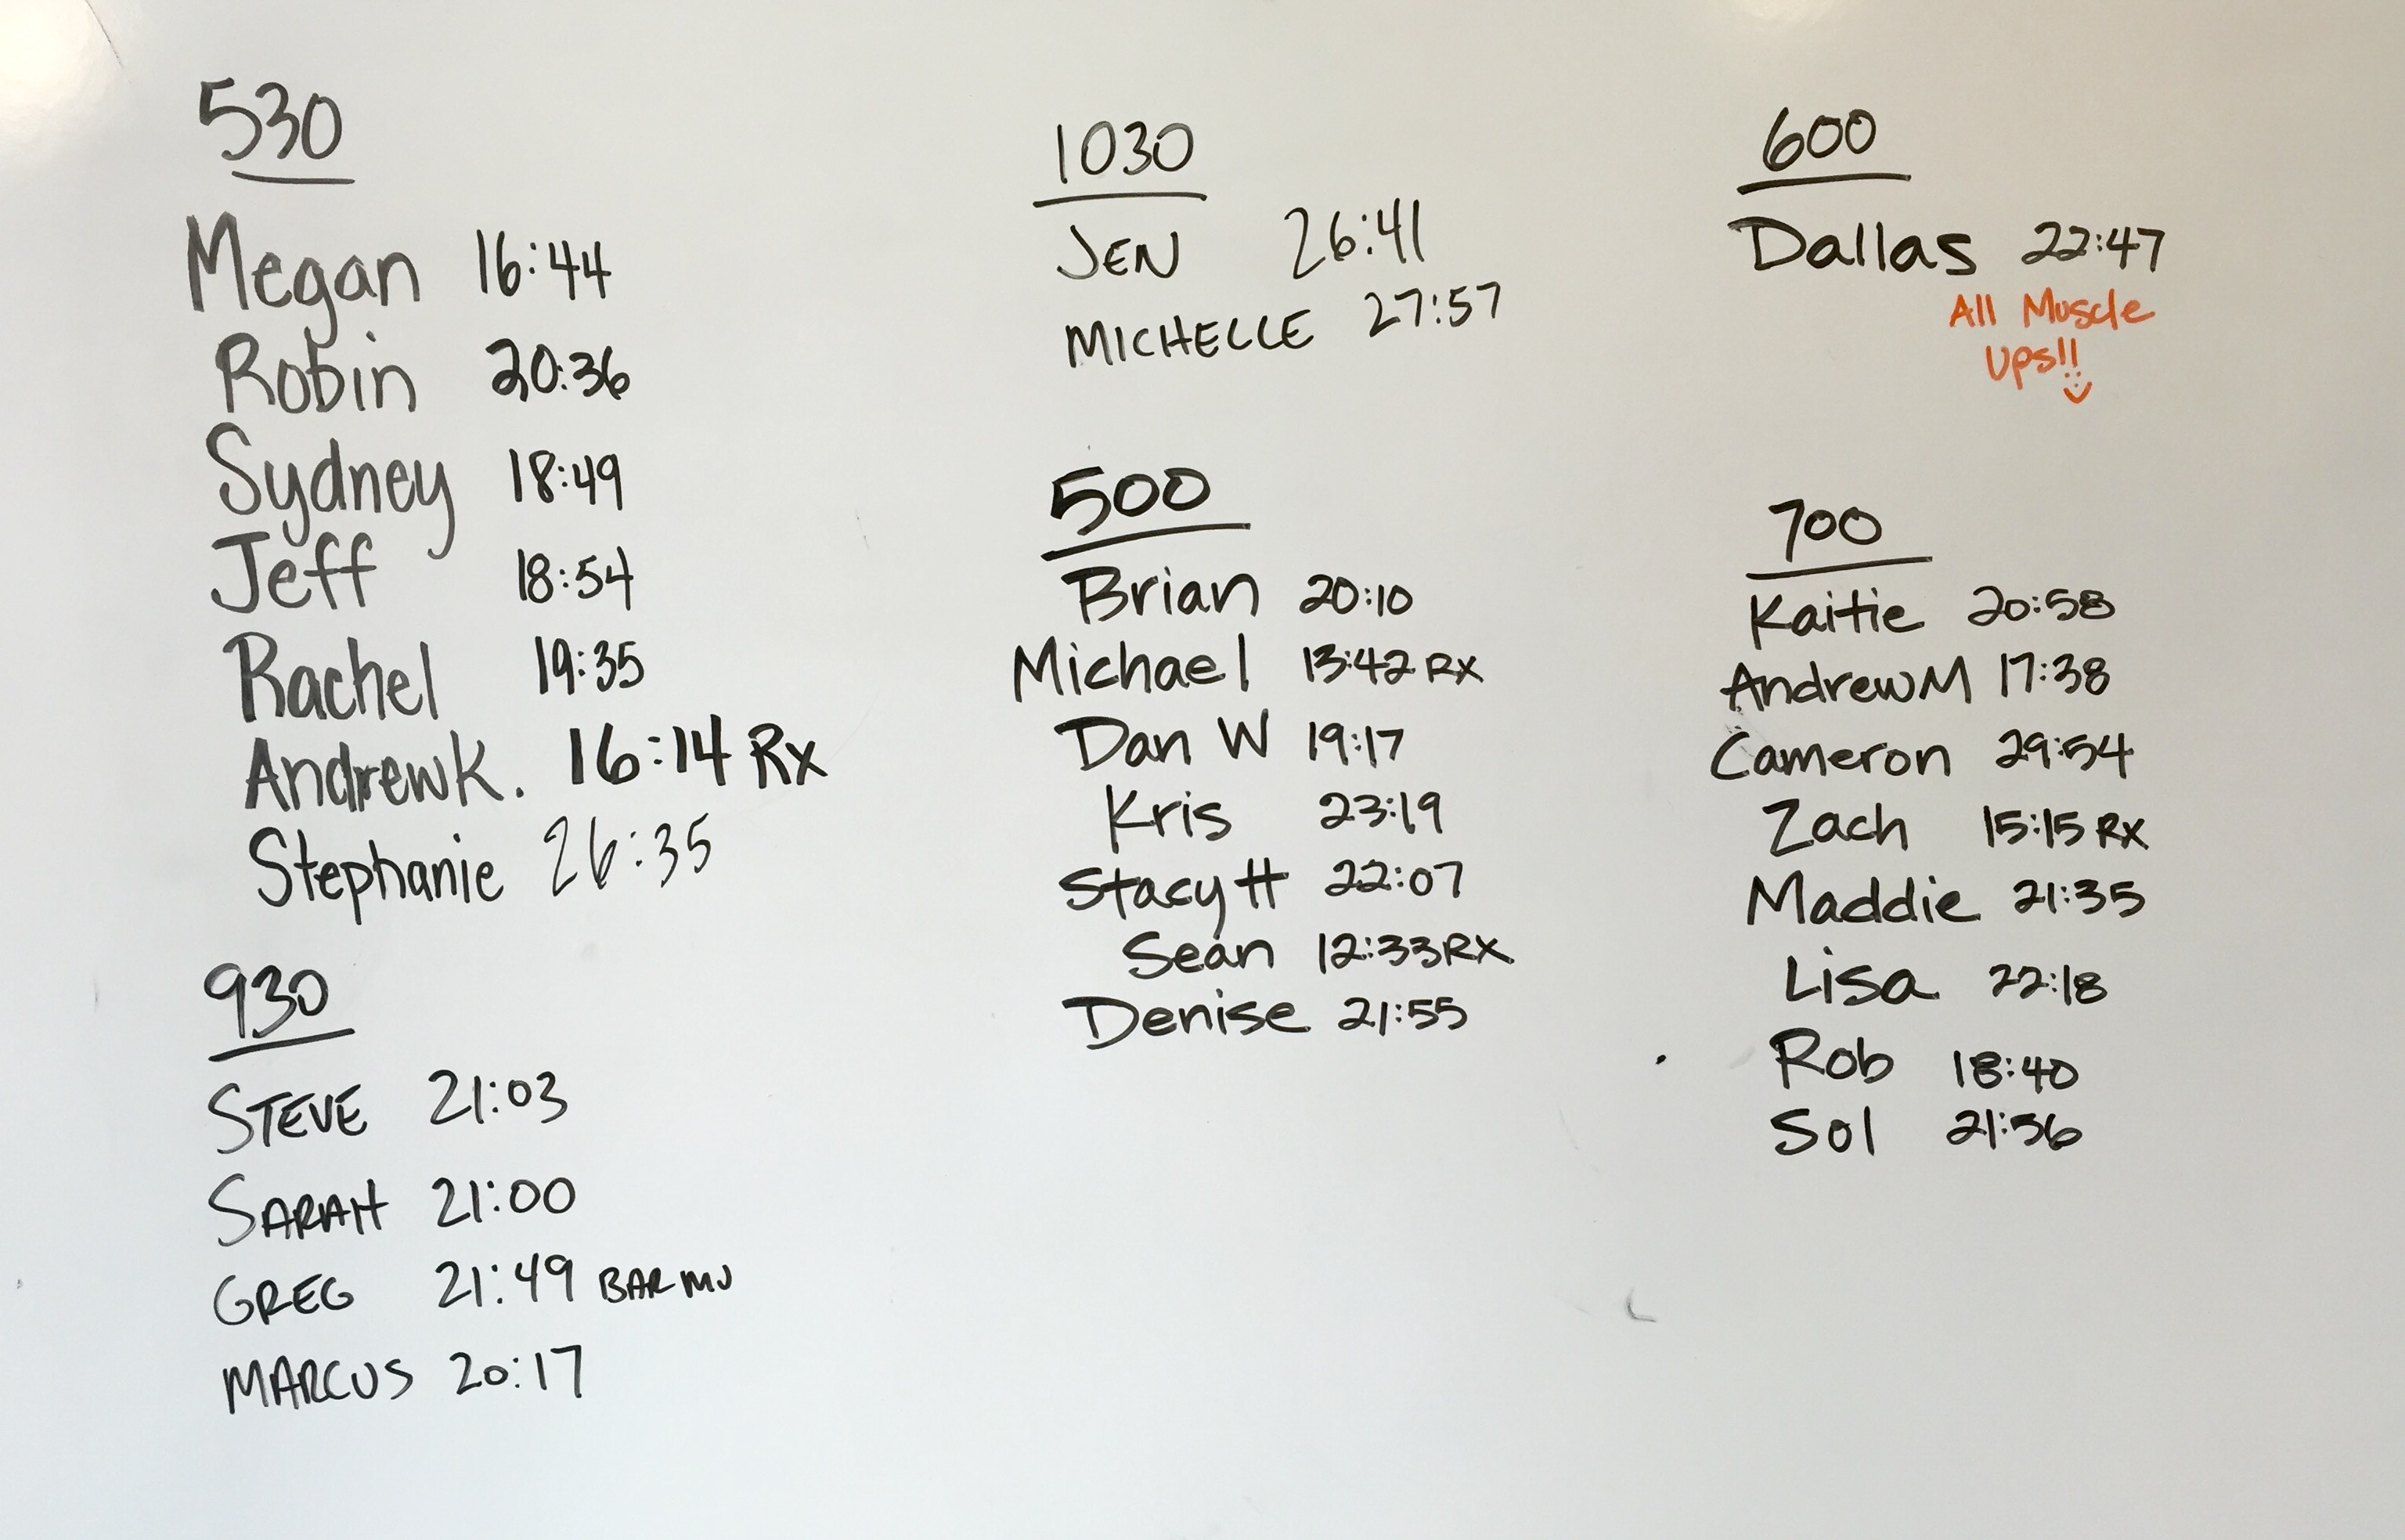 530
Megan 16:44
Robin 20:36
Sydney 18:49
Jeff 18:54
Rachel 19:35
Andrew K. 16:14 Rx
Stephanie 26:35
930
STEVE 21:03
SARAH 21:00
GREG 21:49 BAR MU
MARCUS 20:17
1030
JEN 26:41
MICHELLE 27:57
500
Brian 20:10
Michael 13:42 RX
Dan W 19:17
Kris 23:19
Stacy H 22:07
Sean 12:33 RX
Denise 21:55
600
Dallas 22:47
All Muscle
Ups!!
700
Kaitie 20:58
Andrew M 17:38
Cameron 29:54
Zach 15:15 RX
Maddie 21:35
Lisa 22:18
Rob 18:40
Sol 21:36